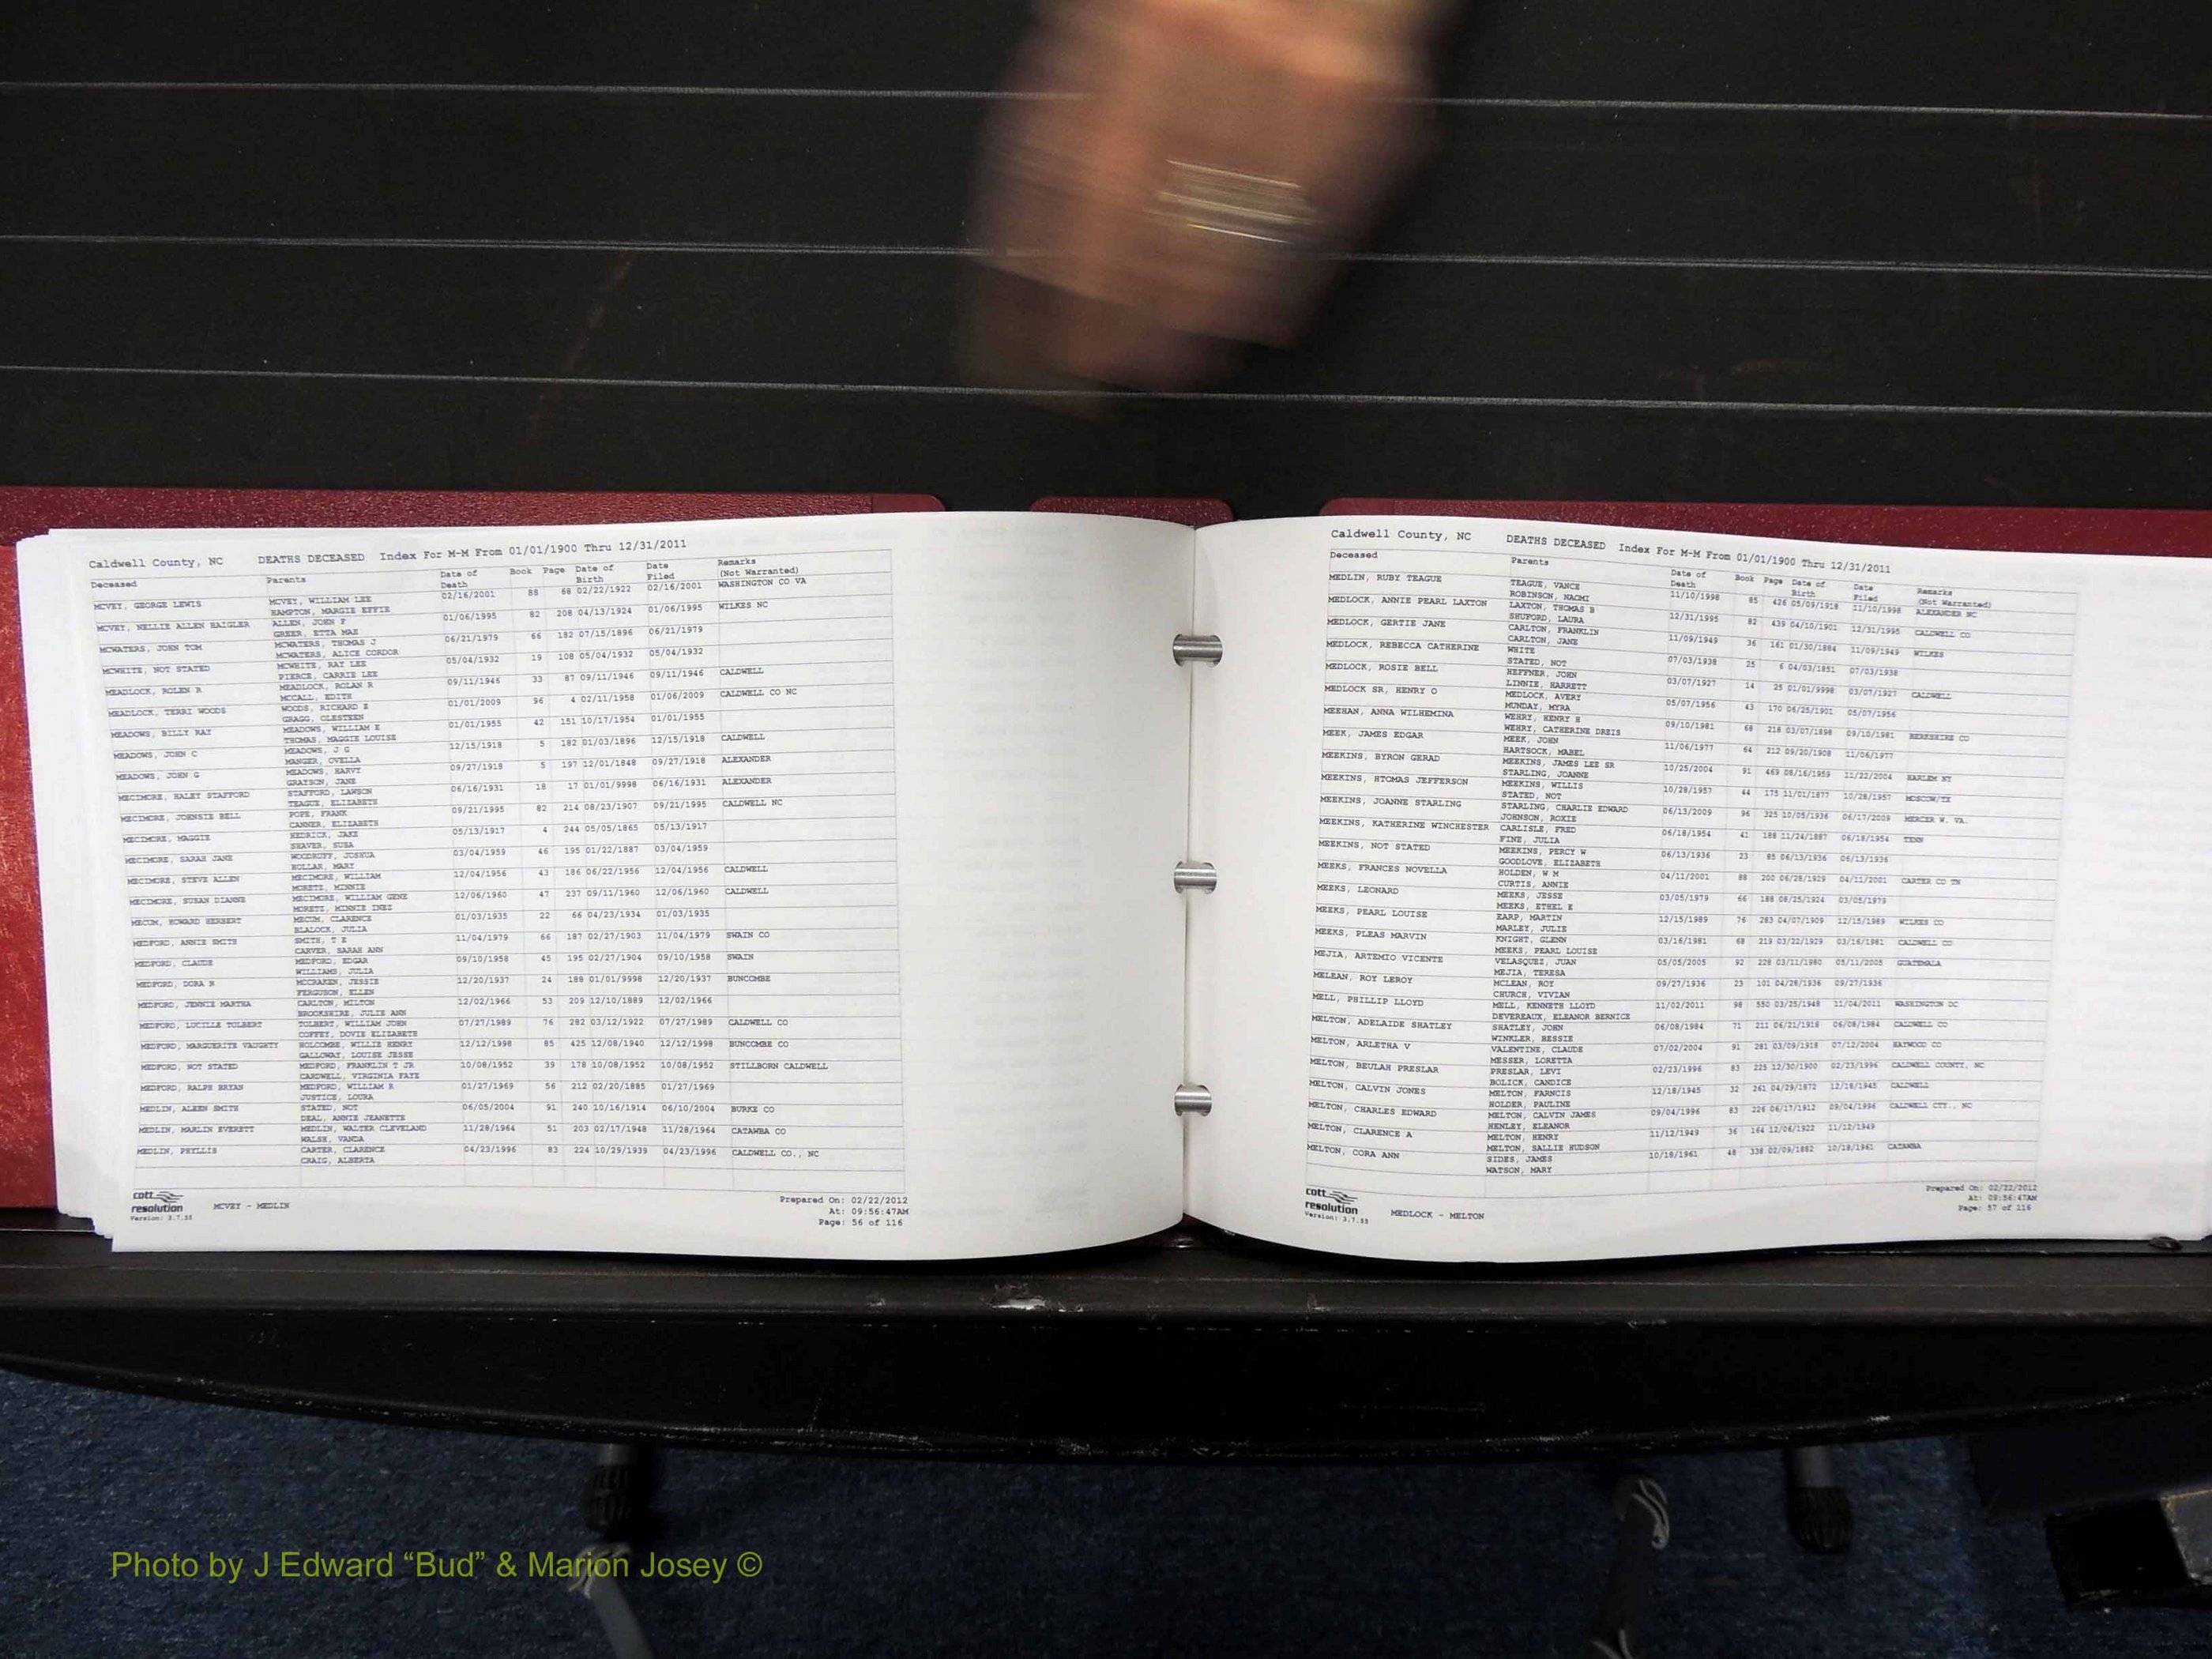 Caldwell County, NC DEATHS DECEASED Index For M-M From 01/01/1900 Thru 12/31/2011
Deceased Parents Date of Death Book Page Date of Birth Date Filed Remarks (Not Warranted)
MCVEY, GEORGE LEWIS MCVEY, WILLIAM LEE 02/16/2001 88 68 02/22/1922 02/16/2001 WASHINGTON CO VA
HAMPTON, MARGIE EFFIE
MCVEY, NELLIE ALLEN HAIGLER ALLEN, JOHN F 01/06/1995 82 208 04/13/1924 01/06/1995 WILKES NC
GREER, ETTA MAE
MCWATERS, JOHN TOM MCWATERS, THOMAS J 06/21/1979 66 182 07/15/1896 06/21/1979
MCWATERS, ALICE CORDOR
MCWHITE, NOT STATED MCWHITE, RAY LEE 05/04/1932 19 108 05/04/1932 05/04/1932
PIERCE, CARRIE LEE
MEADLOCK, ROLEN R MEADLOCK, ROLAN R 09/11/1946 33 87 09/11/1946 09/11/1946 CALDWELL
MCCALL, EDITH
MEADLOCK, TERRI WOODS WOODS, RICHARD E 01/01/2009 96 4 02/11/1958 01/06/2009 CALDWELL CO NC
GRAGG, OLESTEEN
MEADOWS, BILLY RAY MEADOWS, WILLIAM E 01/01/1955 42 151 10/17/1954 01/01/1955
THOMAS, MAGGIE LOUISE
MEADOWS, JOHN C MEADOWS, J G 12/15/1918 5 182 01/03/1896 12/15/1918 CALDWELL
MANGER, OVELLA
MEADOWS, JOHN G MEADOWS, HARVY 09/27/1918 5 197 12/01/1848 09/27/1918 ALEXANDER
GRAYSON, JANE
MECIMORE, HALEY STAFFORD STAFFORD, LAWSON 06/16/1931 18 17 01/01/9998 06/16/1931 ALEXANDER
TEAGUE, ELIZABETH
MECIMORE, JOHNSIE BELL POPE, FRANK 09/21/1995 82 214 08/23/1907 09/21/1995 CALDWELL NC
CANNER, ELIZABETH
MECIMORE, MAGGIE HEDRICK, JAKE 05/13/1917 4 244 05/05/1865 05/13/1917
SHAVER, SUSA
MECIMORE, SARAH JANE WOODRUFF, JOSHUA 03/04/1959 46 195 01/22/1887 03/04/1959
HOLLAR, MARY
MECIMORE, STEVE ALLEN MECIMORE, WILLIAM 12/04/1956 43 186 06/22/1956 12/04/1956 CALDWELL
MORETZ, MINNIE
MECIMORE, SUSAN DIANNE MECIMORE, WILLIAM GENE 12/06/1960 47 237 09/11/1960 12/06/1960 CALDWELL
MORETZ, MINNIE INEZ
MECUM, HOWARD HERBERT MECUM, CLARENCE 01/03/1935 22 66 04/23/1934 01/03/1935
BLALOCK, JULIA
MEDFORD, ANNIE SMITH SMITH, T E 11/04/1979 66 187 02/27/1903 11/04/1979 SWAIN CO
CARVER, SARAH ANN
MEDFORD, CLAUDE MEDFORD, EDGAR 09/10/1958 45 195 02/27/1904 09/10/1958 SWAIN
WILLIAMS, JULIA
MEDFORD, DORA N MCCRAKEN, JESSIE 12/20/1937 24 188 01/01/9998 12/20/1937 BUNCOMBE
FERGUSON, ELLEN
MEDFORD, JENNIE MARTHA CARLTON, MILTON 12/02/1966 53 209 12/10/1889 12/02/1966
BROOKSHIRE, JULIE ANN
MEDFORD, LUCILLE TOLBERT TOLBERT, WILLIAM JOHN 07/27/1989 76 282 03/12/1922 07/27/1989 CALDWELL CO
COFFEY, DOVIE ELIZABETH
MEDFORD, MARGUERITE VAUGHTY HOLCOMBE, WILLIE HENRY 12/12/1998 85 425 12/08/1940 12/12/1998 BUNCOMBE CO
GALLOWAY, LOUISE JESSE
MEDFORD, NOT STATED MEDFORD, FRANKLIN T JR 10/08/1952 39 178 10/08/1952 10/08/1952 STILLBORN CALDWELL
CARDWELL, VIRGINIA FAYE
MEDFORD, RALPH BRYAN MEDFORD, WILLIAM R 01/27/1969 56 212 02/20/1885 01/27/1969
JUSTICE, LOURA
MEDLIN, ALEEN SMITH STATED, NOT 06/05/2004 91 240 10/16/1914 06/10/2004 BURKE CO
DEAL, ANNIE JEANETTE
MEDLIN, MARLIN EVERETT MEDLIN, WALTER CLEVELAND 11/28/1964 51 203 02/17/1948 11/28/1964 CATAWBA CO
WALSH, VANDA
MEDLIN, PHYLLIS CARTER, CLARENCE 04/23/1996 83 224 10/29/1939 04/23/1996 CALDWELL CO., NC
CRAIG, ALBERTA
cott resolution
Version: 3.7.55
MCVEY - MEDLIN
Prepared On: 02/22/2012
At: 09:56:47AM
Page: 56 of 116
Caldwell County, NC DEATHS DECEASED Index For M-M From 01/01/1900 Thru 12/31/2011
Deceased Parents Date of Death Book Page Date of Birth Date Filed Remarks (Not Warranted)
MEDLIN, RUBY TEAGUE TEAGUE, VANCE 11/10/1998 85 426 05/09/1918 11/10/1998 ALEXANDER NC
ROBINSON, NAOMI
MEDLOCK, ANNIE PEARL LAXTON LAXTON, THOMAS B 12/31/1995 82 439 04/10/1901 12/31/1995 CALDWELL CO
SHUFORD, LAURA
MEDLOCK, GERTIE JANE CARLTON, FRANKLIN 11/09/1949 36 161 01/30/1884 11/09/1949 WILKES
CARLTON, JANE
MEDLOCK, REBECCA CATHERINE WHITE 07/03/1938 25 6 04/03/1851 07/03/1938
STATED, NOT
MEDLOCK, ROSIE BELL HEFFNER, JOHN 03/07/1927 14 25 01/01/9998 03/07/1927 CALDWELL
LINNIE, HARRETT
MEDLOCK SR, HENRY O MEDLOCK, AVERY 05/07/1956 43 170 06/25/1901 05/07/1956
MUNDAY, MYRA
MEEHAN, ANNA WILHEMINA WEHRY, HENRY H 09/10/1981 68 218 03/07/1898 09/10/1981 BERKSHIRE CO
WEHRY, CATHERINE DREIS
MEEK, JAMES EDGAR MEEK, JOHN 11/06/1977 64 212 09/20/1908 11/06/1977
HARTSOCK, MABEL
MEEKINS, BYRON GERAD MEEKINS, JAMES LEE SR 10/25/2004 91 469 08/16/1959 11/22/2004 HARLEM NY
STARLING, JOANNE
MEEKINS, HTOMAS JEFFERSON MEEKINS, WILLIS 10/28/1957 44 175 11/01/1877 10/28/1957 MOSCOW/TX
STATED, NOT
MEEKINS, JOANNE STARLING STARLING, CHARLIE EDWARD 06/13/2009 96 325 10/05/1936 06/17/2009 MERCER W. VA.
JOHNSON, ROXIE
MEEKINS, KATHERINE WINCHESTER CARLISLE, FRED 06/18/1954 41 188 11/24/1887 06/18/1954 TENN
FINE, JULIA
MEEKINS, NOT STATED MEEKINS, PERCY W 06/13/1936 23 85 06/13/1936 06/13/1936
GOODLOVE, ELIZABETH
MEEKS, FRANCES NOVELLA HOLDEN, W M 04/11/2001 88 200 06/28/1929 04/11/2001 CARTER CO TN
CURTIS, ANNIE
MEEKS, LEONARD MEEKS, JESSE 03/05/1979 66 188 08/25/1924 03/05/1979
MEEKS, ETHEL E
MEEKS, PEARL LOUISE EARP, MARTIN 12/15/1989 76 283 04/07/1909 12/15/1989 WILKES CO
MARLEY, JULIE
MEEKS, PLEAS MARVIN KNIGHT, GLENN 03/16/1981 68 219 03/22/1929 03/16/1981 CALDWELL CO
MEEKS, PEARL LOUISE
MEJIA, ARTEMIO VICENTE VELASQUEZ, JUAN 05/05/2005 92 228 03/11/1980 05/11/2005 GUATEMALA
MEJIA, TERESA
MELEAN, ROY LEROY MCLEAN, ROY 09/27/1936 23 101 04/28/1936 09/27/1936
CHURCH, VIVIAN
MELL, PHILLIP LLOYD MELL, KENNETH LLOYD 11/02/2011 98 550 03/25/1948 11/04/2011 WASHINGTON DC
DEVEREAUX, ELEANOR BERNICE
MELTON, ADELAIDE SHATLEY SHATLEY, JOHN 06/08/1984 71 211 06/21/1918 06/08/1984 CALDWELL CO
WINKLER, BESSIE
MELTON, ARLETHA V VALENTINE, CLAUDE 07/02/2004 91 281 03/09/1918 07/12/2004 HAYWOOD CO
MESSER, LORETTA
MELTON, BEULAH PRESLAR PRESLAR, LEVI 02/23/1996 83 225 12/30/1900 02/23/1996 CALDWELL COUNTY, NC
BOLICK, CANDICE
MELTON, CALVIN JONES MELTON, FARNCIS 12/18/1945 32 261 04/29/1872 12/18/1945 CALDWELL
HOLDER, PAULINE
MELTON, CHARLES EDWARD MELTON, CALVIN JAMES 09/04/1996 83 226 06/17/1912 09/04/1996 CALDWELL CTY., NC
HENLEY, ELEANOR
MELTON, CLARENCE A MELTON, HENRY 11/12/1949 36 164 12/06/1922 11/12/1949
MELTON, SALLIE HUDSON
MELTON, CORA ANN SIDES, JAMES 10/18/1961 48 338 02/09/1882 10/18/1961 CATAWBA
WATSON, MARY
cott resolution
Version: 3.7.55
MEDLOCK - MELTON
Prepared On: 02/22/2012
At: 09:56:47AM
Page: 57 of 116
Photo by J Edward “Bud” & Marion Josey ©